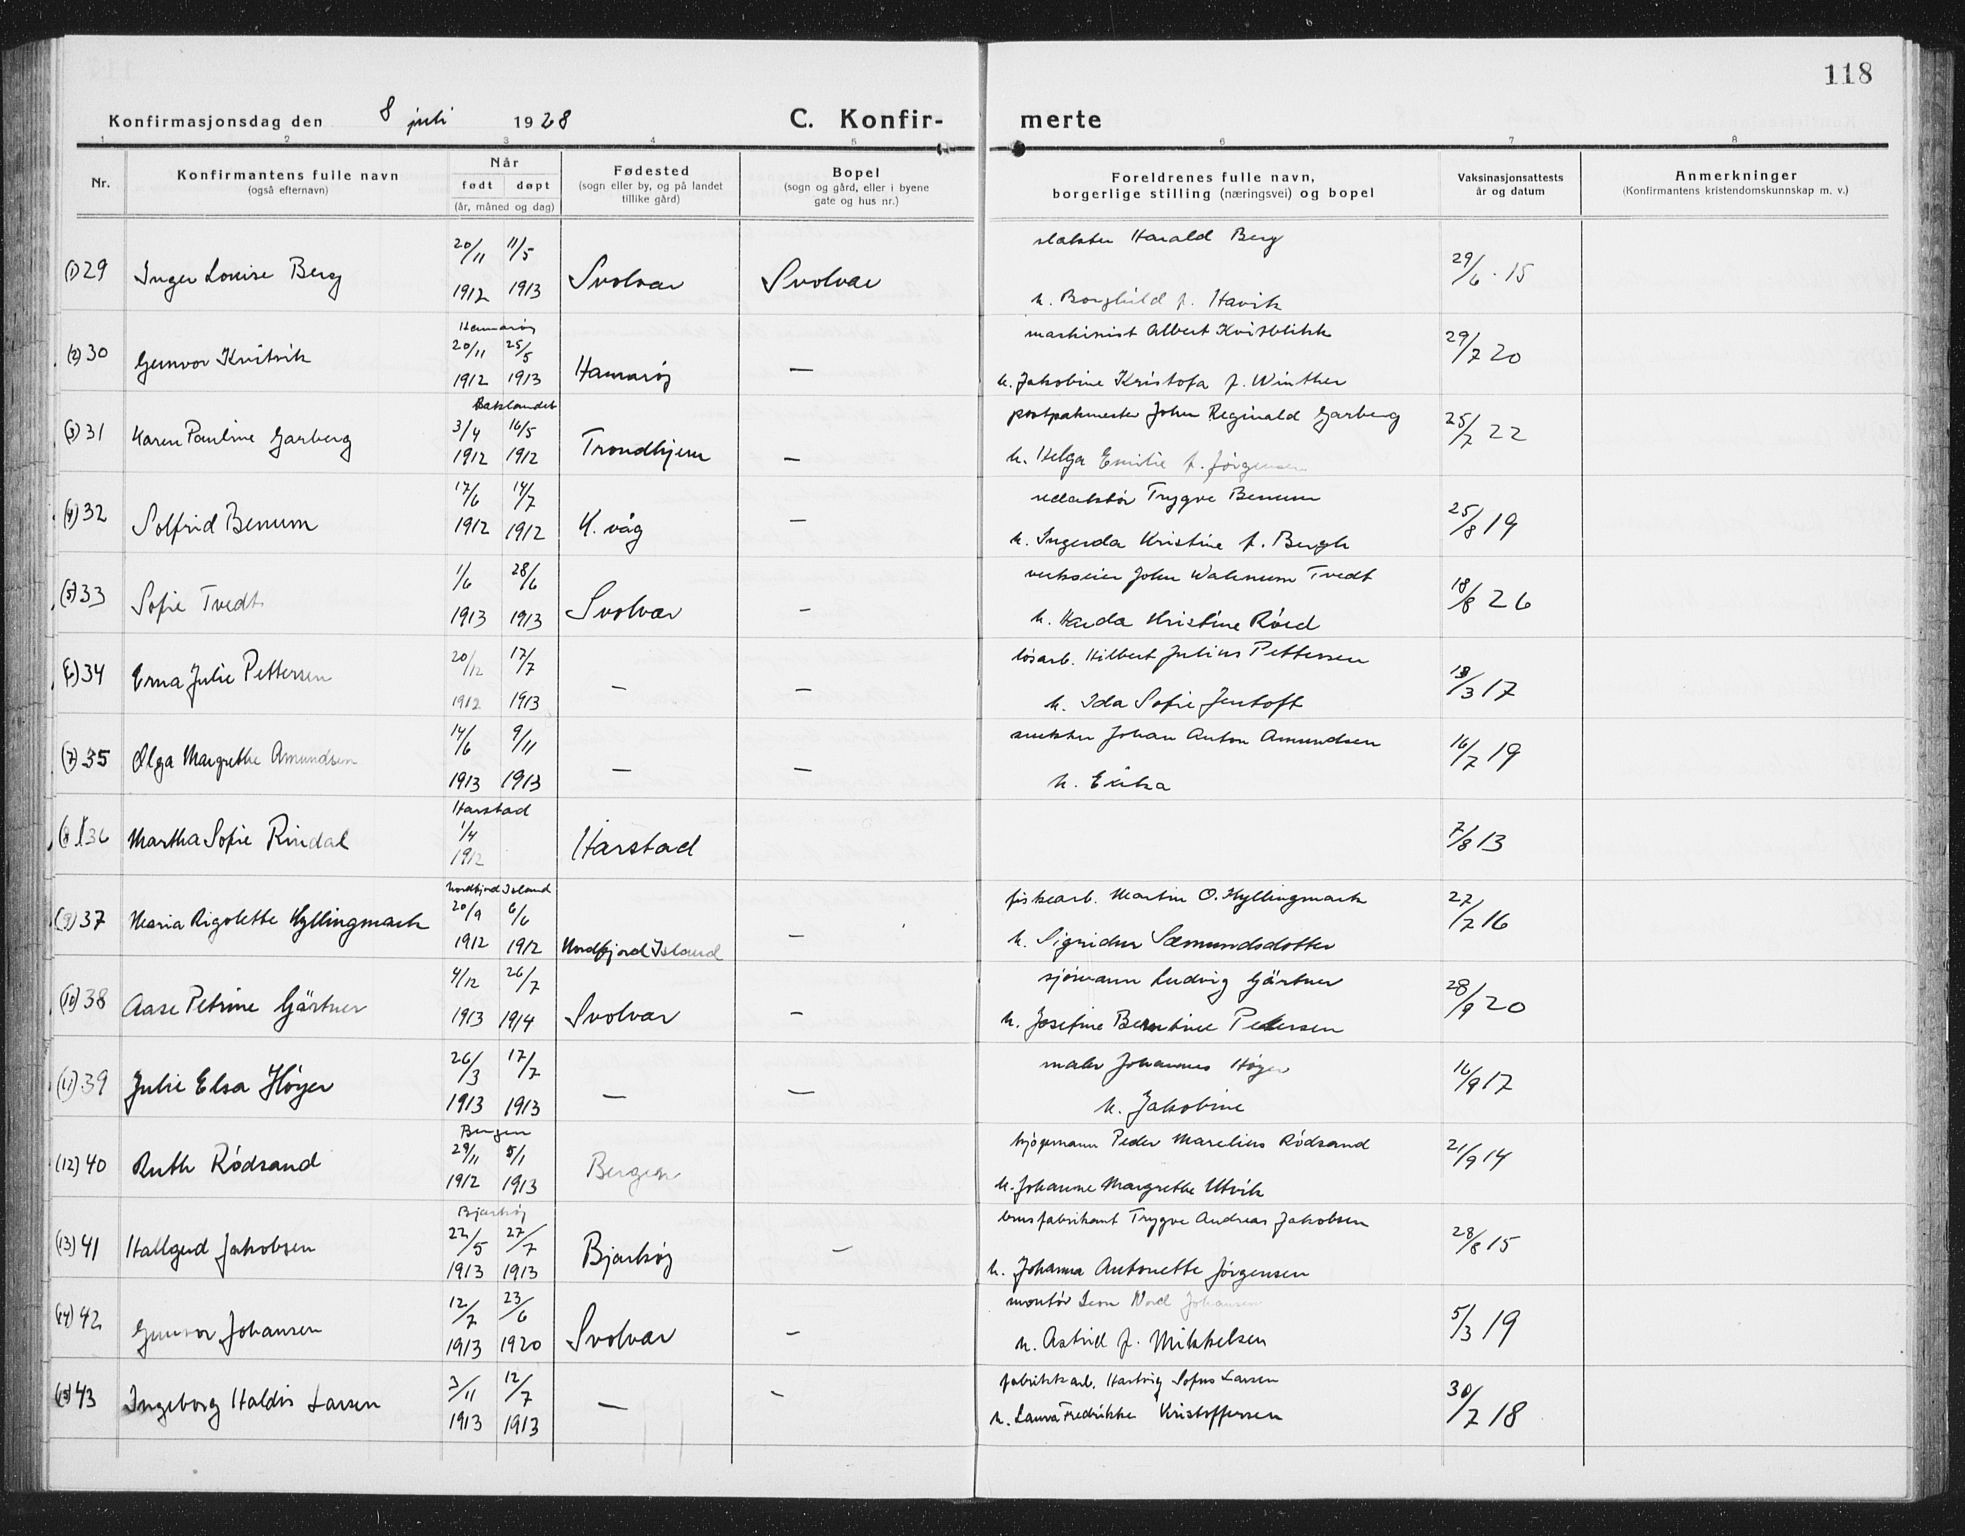 118
Konfirmasjonsdag den 8 juli 1928 C. Konfir- merte
1 2 3 4 5 6 7 8
Nr. Konfirmantens fulle navn (også efternavn) Når født døpt (år, måned og dag) Fødested (sogn eller by, og på landet tillike gård) Bopel (sogn og gård, eller i byene gate og hus nr.) Foreldrenes fulle navn, borgerlige stilling (næringsvei) og bopel Vaksinasjonsattests år og datum Anmerkninger (Konfirmantens kristendomskunnskap m. v.)
slakter Harald Berg
(1) 29 Inger Louise Berg 20/11 1912 11/5 1913 Svolvær Svolvær 29/6 15
h. Borghild f. Havik
Hamarøy maskinist Albert Kvitblikk
(2) 30 Gunvor Kvitvik 20/11 1912 25/5 1913 Hamarøy — 29/7 20
h. Jakobine Kristofa f. Winther
Baklandet postpakmester John Reginald Garberg
(3) 31 Karen Pauline Garberg 3/4 1912 16/5 1912 Trondhjem — 25/7 22
h. Helga Emilie f. Jørgensen
redaktør Trygve Benum
(4) 32 Solfrid Benum 17/6 1912 14/7 1912 K. våg — 25/8 19
h. Ingerda Kristine f. Bergh
verkseier John Tvedt
(5) 33 Sofie Tvedt 1/6 1913 28/6 1913 Svolvær — 18/8 26
h. Kristine
løsarb. Hilbert Julius Pettersen
(6) 34 Erna Julie Pettersen 20/12 1912 17/7 1913 — — /3 17
h. Ida Sofie Jentoft
snekker Johan Anton Amundsen
(7) 35 Olga Margrethe Amundsen 14/6 1913 9/11 1913 — — 16/7 19
h. Erika
Harstad
(8) 36 Martha Sofie Rindal 1/4 1912 Harstad 7/8 13
Nordfjord Island fiskearb. Martin O. Hyllingmark
(9) 37 Maria Rigolette Hyllingmark 20/9 1912 6/6 1912 Nordfjord Island — 27/7 16
h. Sigridur Sæmundsdotter
sjømann Ludvig Gärtner
(10) 38 Aase Petrine Gärtner 4/12 1913 26/7 1914 Svolvær — 28/9 20
h. Josefine Berntine Petersen
maler Johannes Høyer
(11) 39 Julie Elsa Høyer 26/3 1913 17/7 1913 — — 16/9 17
h. Jakobine
Bergen Peder Marelius Rødsand
(12) 40 Ruth Rødsand 29/11 1912 5/1 1913 Bergen 21/9 14
h. Johanne Margrethe Utvik
Bjarkøy brusfabrikant Trygve Andreas Jakobsen
(13) 41 Hallgerd Jakobsen 22/5 1913 27/7 1913 Bjarkøy — 28/8 15
h. Johanna Antonette Jørgensen
montør Johansen
(14) 42 Gunvor Johansen 12/7 1913 23/6 1920 Svolvær — 5/3 19
h. Astrid f. Mikkelsen
fabrikkarb. Hartvig Sofus Larsen
(15) 43 Ingeborg Haldis Larsen 3/11 1913 12/7 1913 — — 30/7 18
h. Laura Fredrikke Kristoffersen